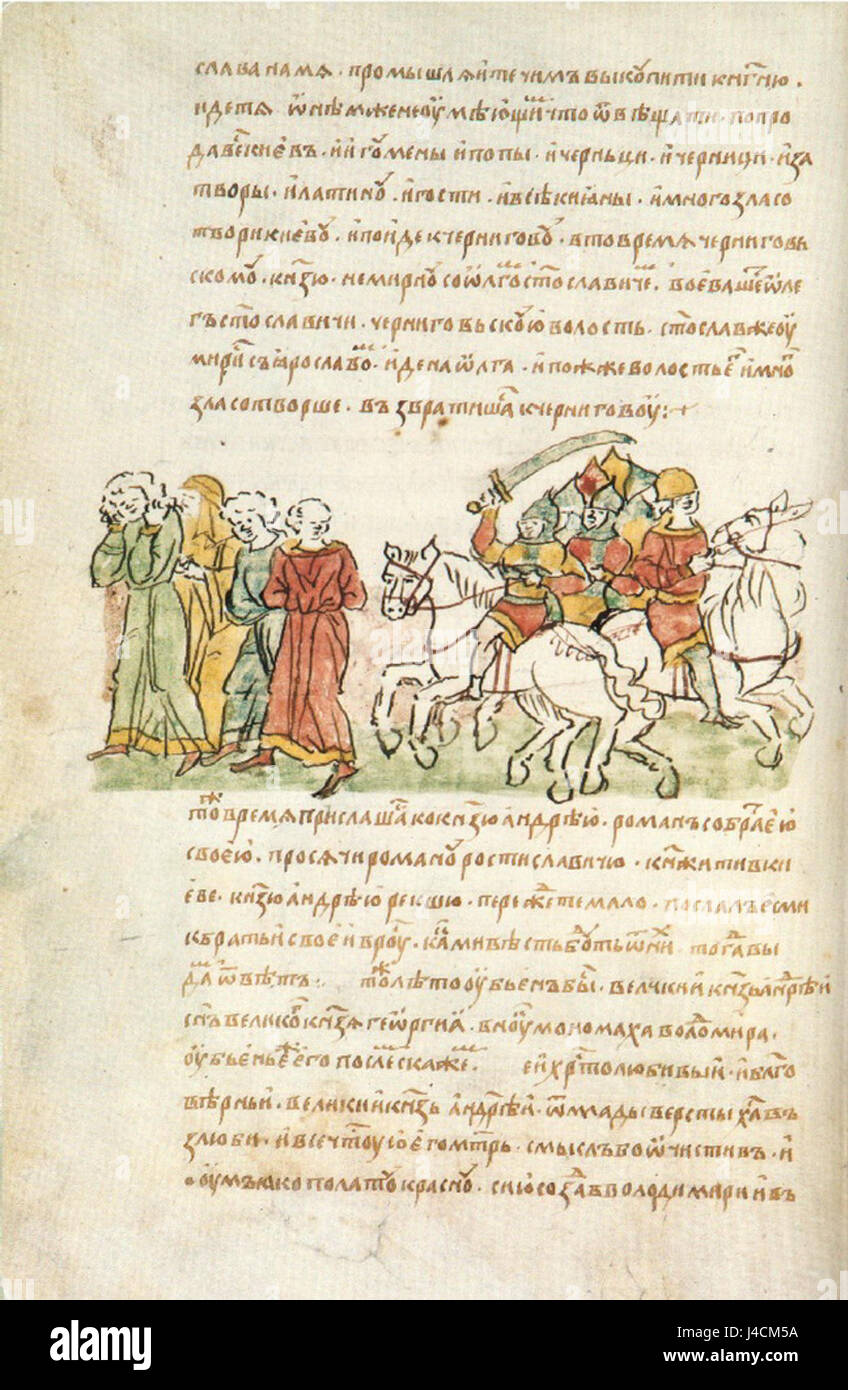 слава на мя · промышляите чимъ выкупити княгиню ·
и дѣтя ѡнѣм же не оумѣющи что ѿвѣщати · попро
да весь киевъ · и игоумены и попы · и черньци · и черници · и за
творы · и латиноу · и гости · и всѣ кияны · и много зла со
твори киевоу · и поиде к черниговоу · в то время чернигов
скомоу · кн҃зю · не мирноу со ѡлгомъ ст҃ославичем · воеваше ѡле
гъ ст҃ославичи · черниговьскоую волость · ст҃ослав же оу
мирис съ ярославо · иде на ѡлга · и пожже волость е и мно
зла сотворше · възвратишас к черниговоу :
В то время прислашас ко кн҃зю андрѣю · романъ с братею
своею · просячи романоу ростиславичю · княжити в ки
еве · кн҃зю андрѣю рекшю · пережете мало · послалъ есми
к братьи своеи в роу · как ми вѣсть боудеть ѿ них тогда вы
дам ѿвѣтъ · Том лѣто оубьенъ быс · великии кн҃зь андрѣи
сн҃ъ великого кн҃зя георгия · вноу мономаха володимира ·
оубьенье же его послеже скажем · сеи христолюбивыи · и благо
вѣрныи · великии кн҃зь андрѣи · ѿ млады версты христа въ
злюби · и всечтоую его мтрь · смыслъ бо ѡчистивъ · и
оумъ яко полатоу красноу · сию созда в володимири и въ
alamy
J4CM5A
www.alamy.com